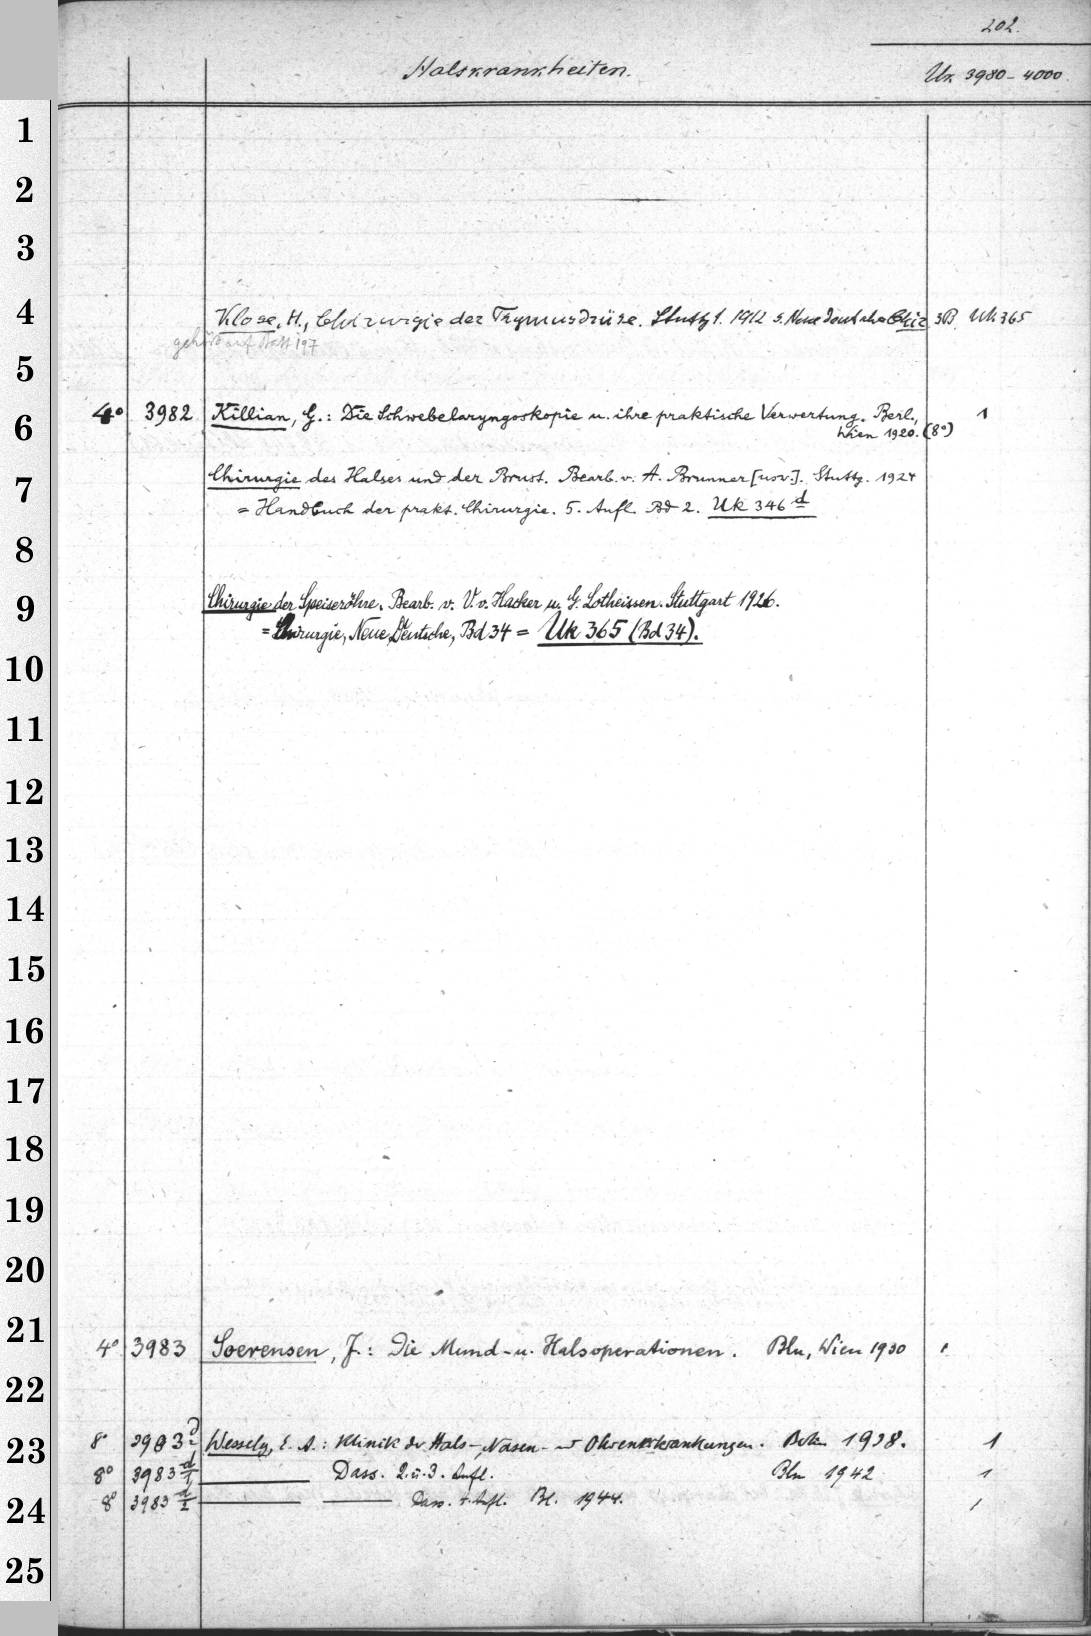 202.
Halskrankheiten.
Uk 3980-4000
1
2
3
4
Klose, H., Chirurgie der Thymusdrüse. Stuttg. 1912 s. Neue Deutsche Chir. 3B. Uk 365
gehört auf Blatt 197
5
4° 3982 Killian, G.: Die Schwebelaryngoskopie u. ihre praktische Verwertung. Berl., 1
6
Wien 1920. (8°)
7
Chirurgie des Halses und der Brust. Bearb. v. A. Brunner [usw.]. Stuttg. 1924
= Handbuch der prakt. Chirurgie. 5. Aufl. Bd 2. Uk 346 d
8
9
Chirurgie der Speiseröhre. Bearb. v. V. v. Hacker u. G. Lotheissen. Stuttgart 1926.
= Chirurgie, Neue Deutsche, Bd 34 = Uk 365 (Bd 34).
10
11
12
13
14
15
16
17
18
19
20
21
4° 3983 Soerensen, J.: Die Mund- u. Halsoperationen. Bln, Wien 1930 1
22
8° 3983 Wessely, E. A.: Klinik der Hals-, Nasen- u. Ohrenerkrankungen. Bln 1938. 1
23
8° 3983 d/1 Dass. 2. u. 3. Aufl. Bln 1942 1
8° 3983 d/2 Dass. 4. Aufl. Bl. 1944. 1
24
25